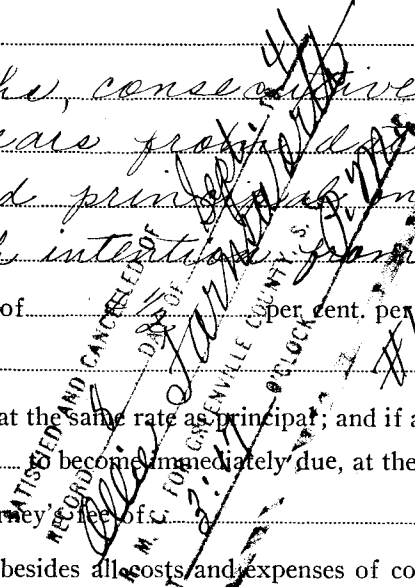 hs, consecutive
ears from date
d principal on
h intention from
of per cent. per
at the same rate as principal; and if a
to become immediately due, at the
rney's fee of
besides all costs and expenses of co
SATISFIED AND CANCELLED OF
RECORD DAY OF Sept. 1941
Ollie Farnsworth
R. M. C. FOR GREENVILLE COUNTY, S.
3:17 O'CLOCK P. M.
#